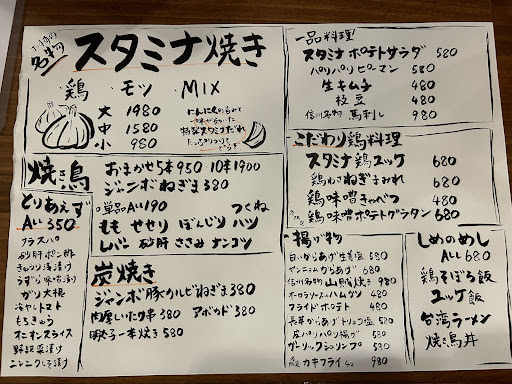 名物
スタミナ焼き
鶏・モツ・MIX
大 1980
中 1580
小 980
特製スタミナだれ
焼き鳥
おまかせ5本950 10本1900
ジャンボねぎま380
○単品ALL190 つくね
もも せせり ぼんじり ハツ
レバー 砂肝 ささみ ナンコツ
とりあえず
ALL 350
砂肝ポン酢
きゅうり浅漬け
うずら味噌漬け
ガリ大根
冷やしトマト
もろきゅう
オニオンスライス
野沢菜漬け
ニンニクしそ漬け
炭焼き
ジャンボ豚カルビねぎま380
肉屋いたり串380 アボカド380
明太子一本焼き580
一品料理
スタミナポテトサラダ 580
パリパリピーマン 580
生キムチ 480
枝豆 480
信州名物 馬刺し 980
こだわり鶏料理
スタミナ鶏ユッケ 680
鶏わさねぎまみれ 680
鶏味噌きゃべつ 480
鶏味噌ポテトグラタン 680
揚げ物
白いからあげ生姜塩 580
ヤンニョムからあげ 680
信州名物 山賊焼き 980
オーロラソースハムカツ 480
フライドポテト 480
長芋からあげトリュフ塩 580
尻パリパリ揚げ 580
ガーリックシュリンプ 580
カキフライ 980
しめのめし
ALL 680
鶏そぼろ飯
ユッケ飯
台湾ラーメン
焼き鳥丼